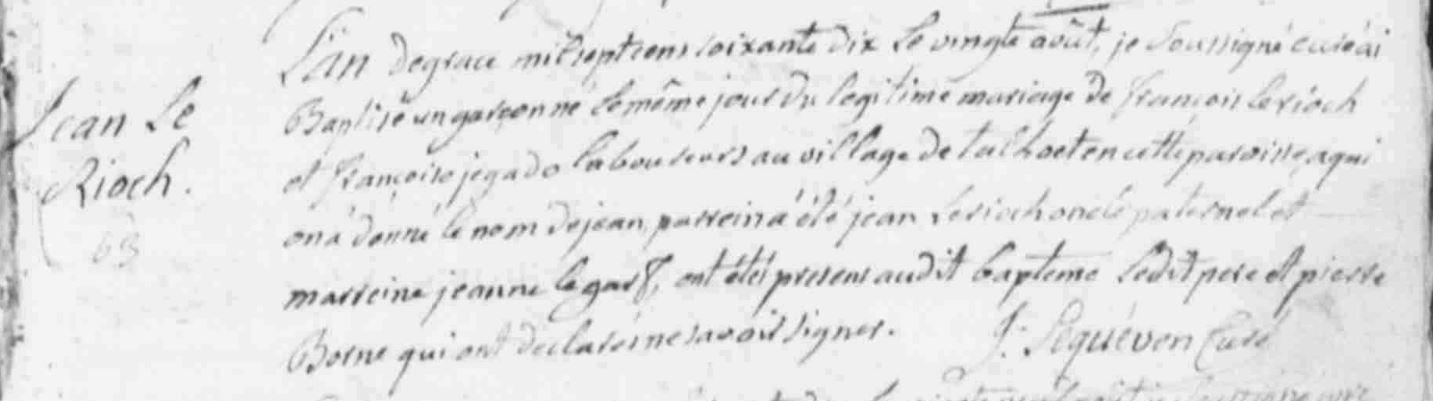 Jean Le
Rioch.
63
L'an degrace mil sept cens soixante dix le vingte août, je soussigné curé ai
Baptisé un garçon né le même jour du legitime mariage de françois le rioch
et françoise jegado laboureurs au village de talhoet en cette paroisse, a qui
on a donné le nom de jean, parrein a été jean le rioch oncle paternel et
marreine jeanne le garf, ont étés presens audit bapteme ledit pere et pierre
Borne qui ont declaré ne savoir signer. J: Lequéven Curé